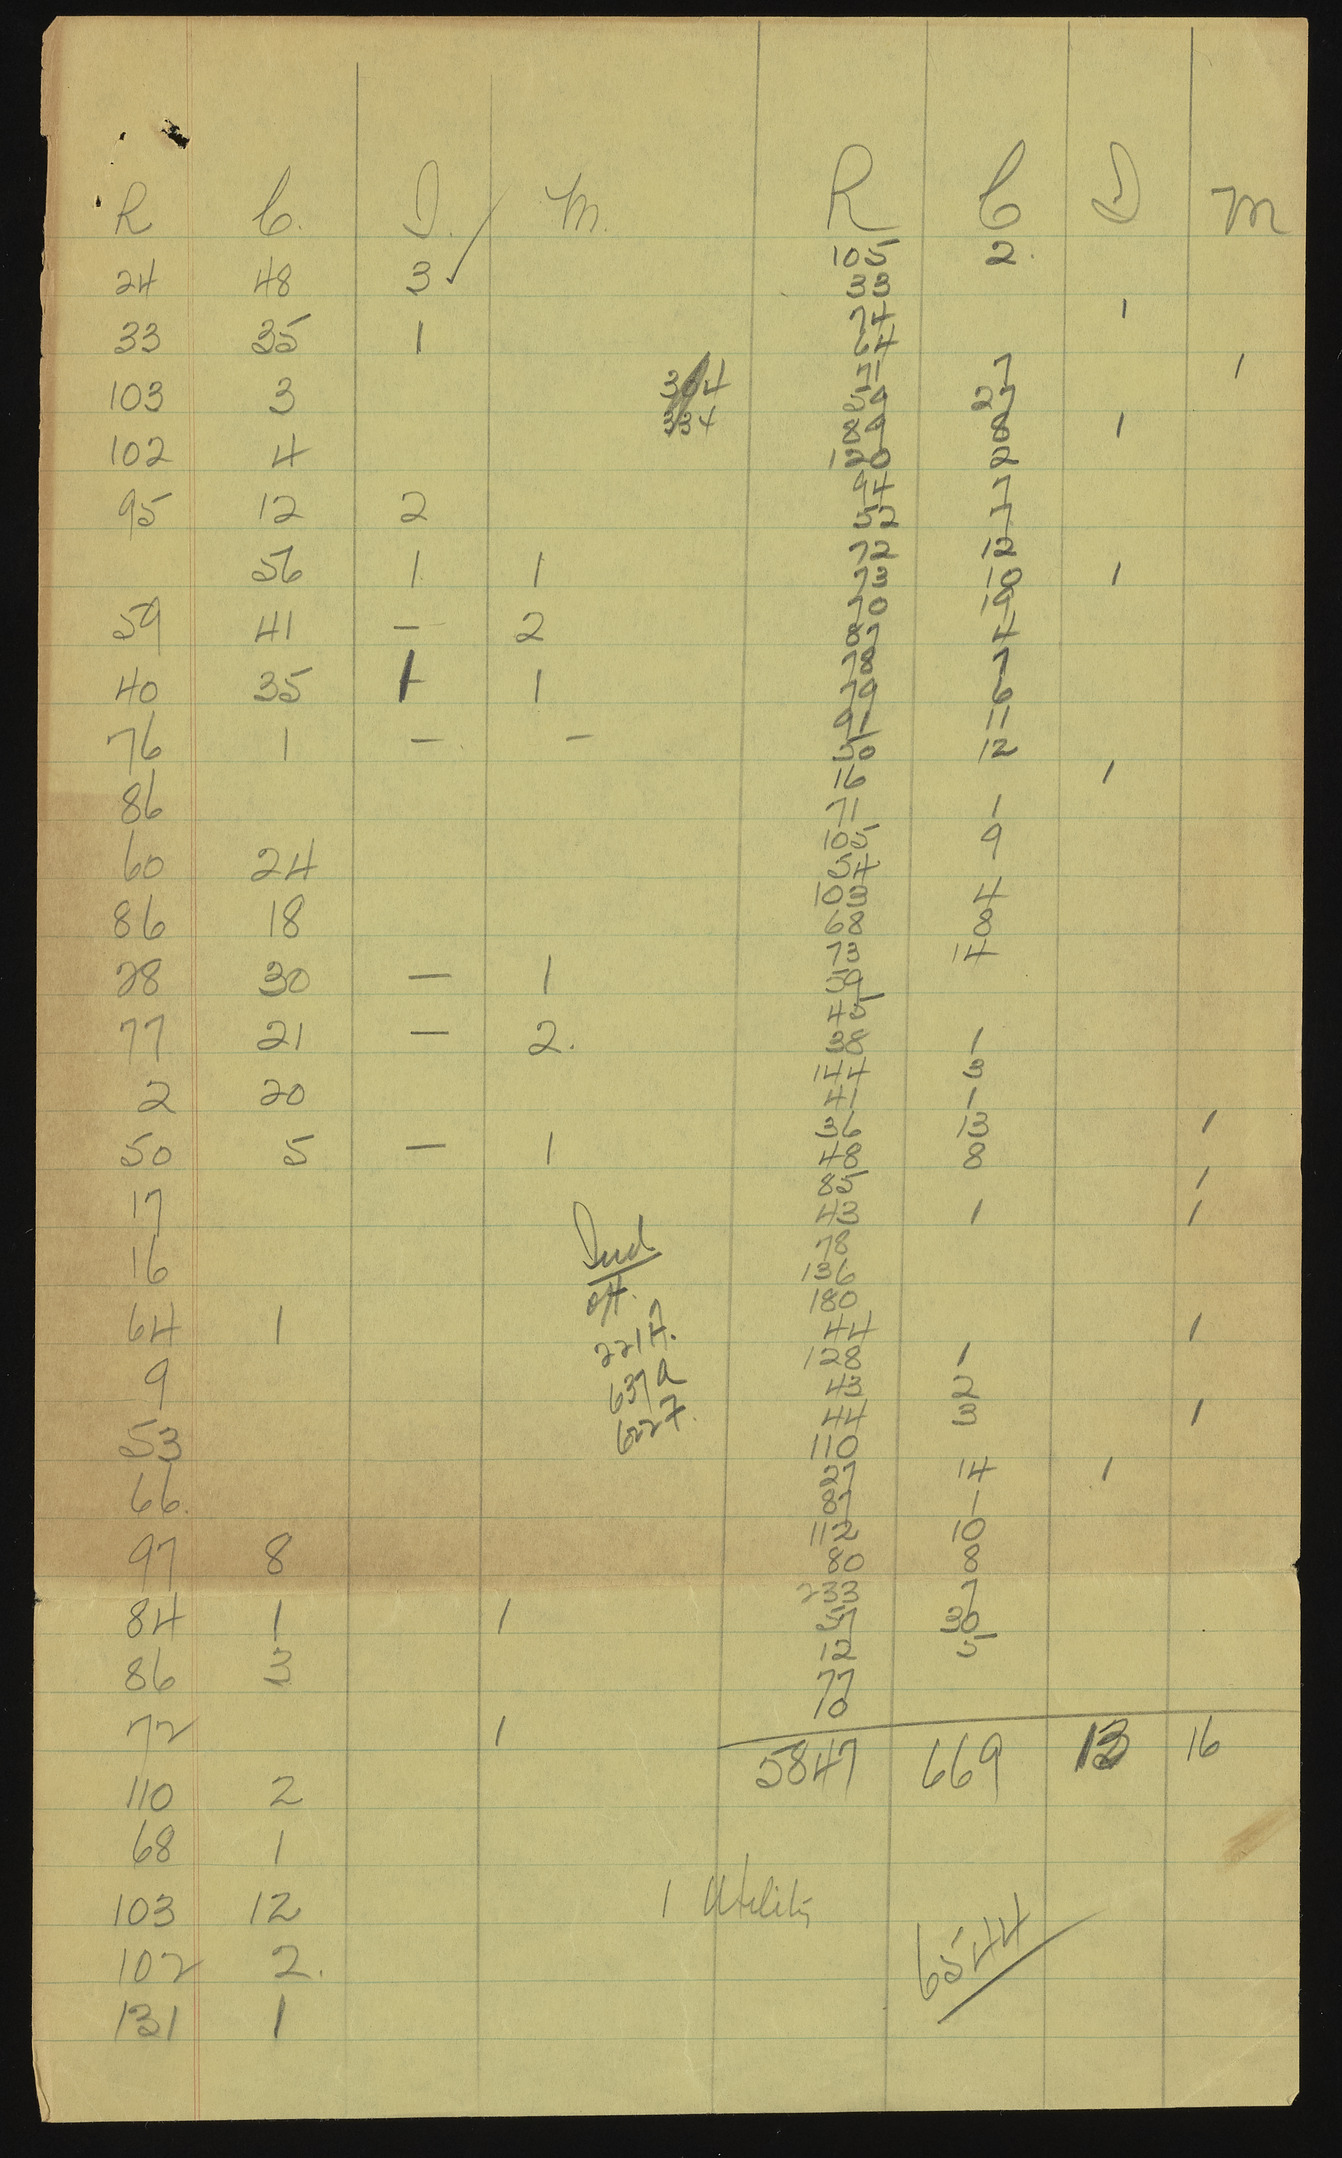 R C. D. M.
24 48 3 ✓
33 35 1
103 3
102 4
95 12 2
56 1 1
59 41 — 2
40 35 1 1
76 1 — —
86
60 24
86 18
28 30 — 1
77 21 — 2.
2 20
50 5 — 1
17
16
64 1
9
53
66.
97 8
84 1 1
86 3
72 1
110 2
68 1
103 12
102 2.
131 1
304
334
Ind
off.
221 A.
637 A
622 A.
R C D M
105 2.
33
74 1
64
71 7 1
59 27
89 8 1
120 2
94 7
52 7
72 12
73 10 1
70 19
87 4
78 7
79 6
91 11
30 12
16 1
71 1
105 9
54
103 4
68 8
73 14
59
45
38 1
144 3
41 1
36 13 1
48 8
85 1
43 1 1
78
136
180
44 1
128 1
43 2
44 3 1
110
27 14 1
87 1
112 10
80 8
233 7
57 30
12 5
77
10
5847 669 13 16
1 Utility
6544